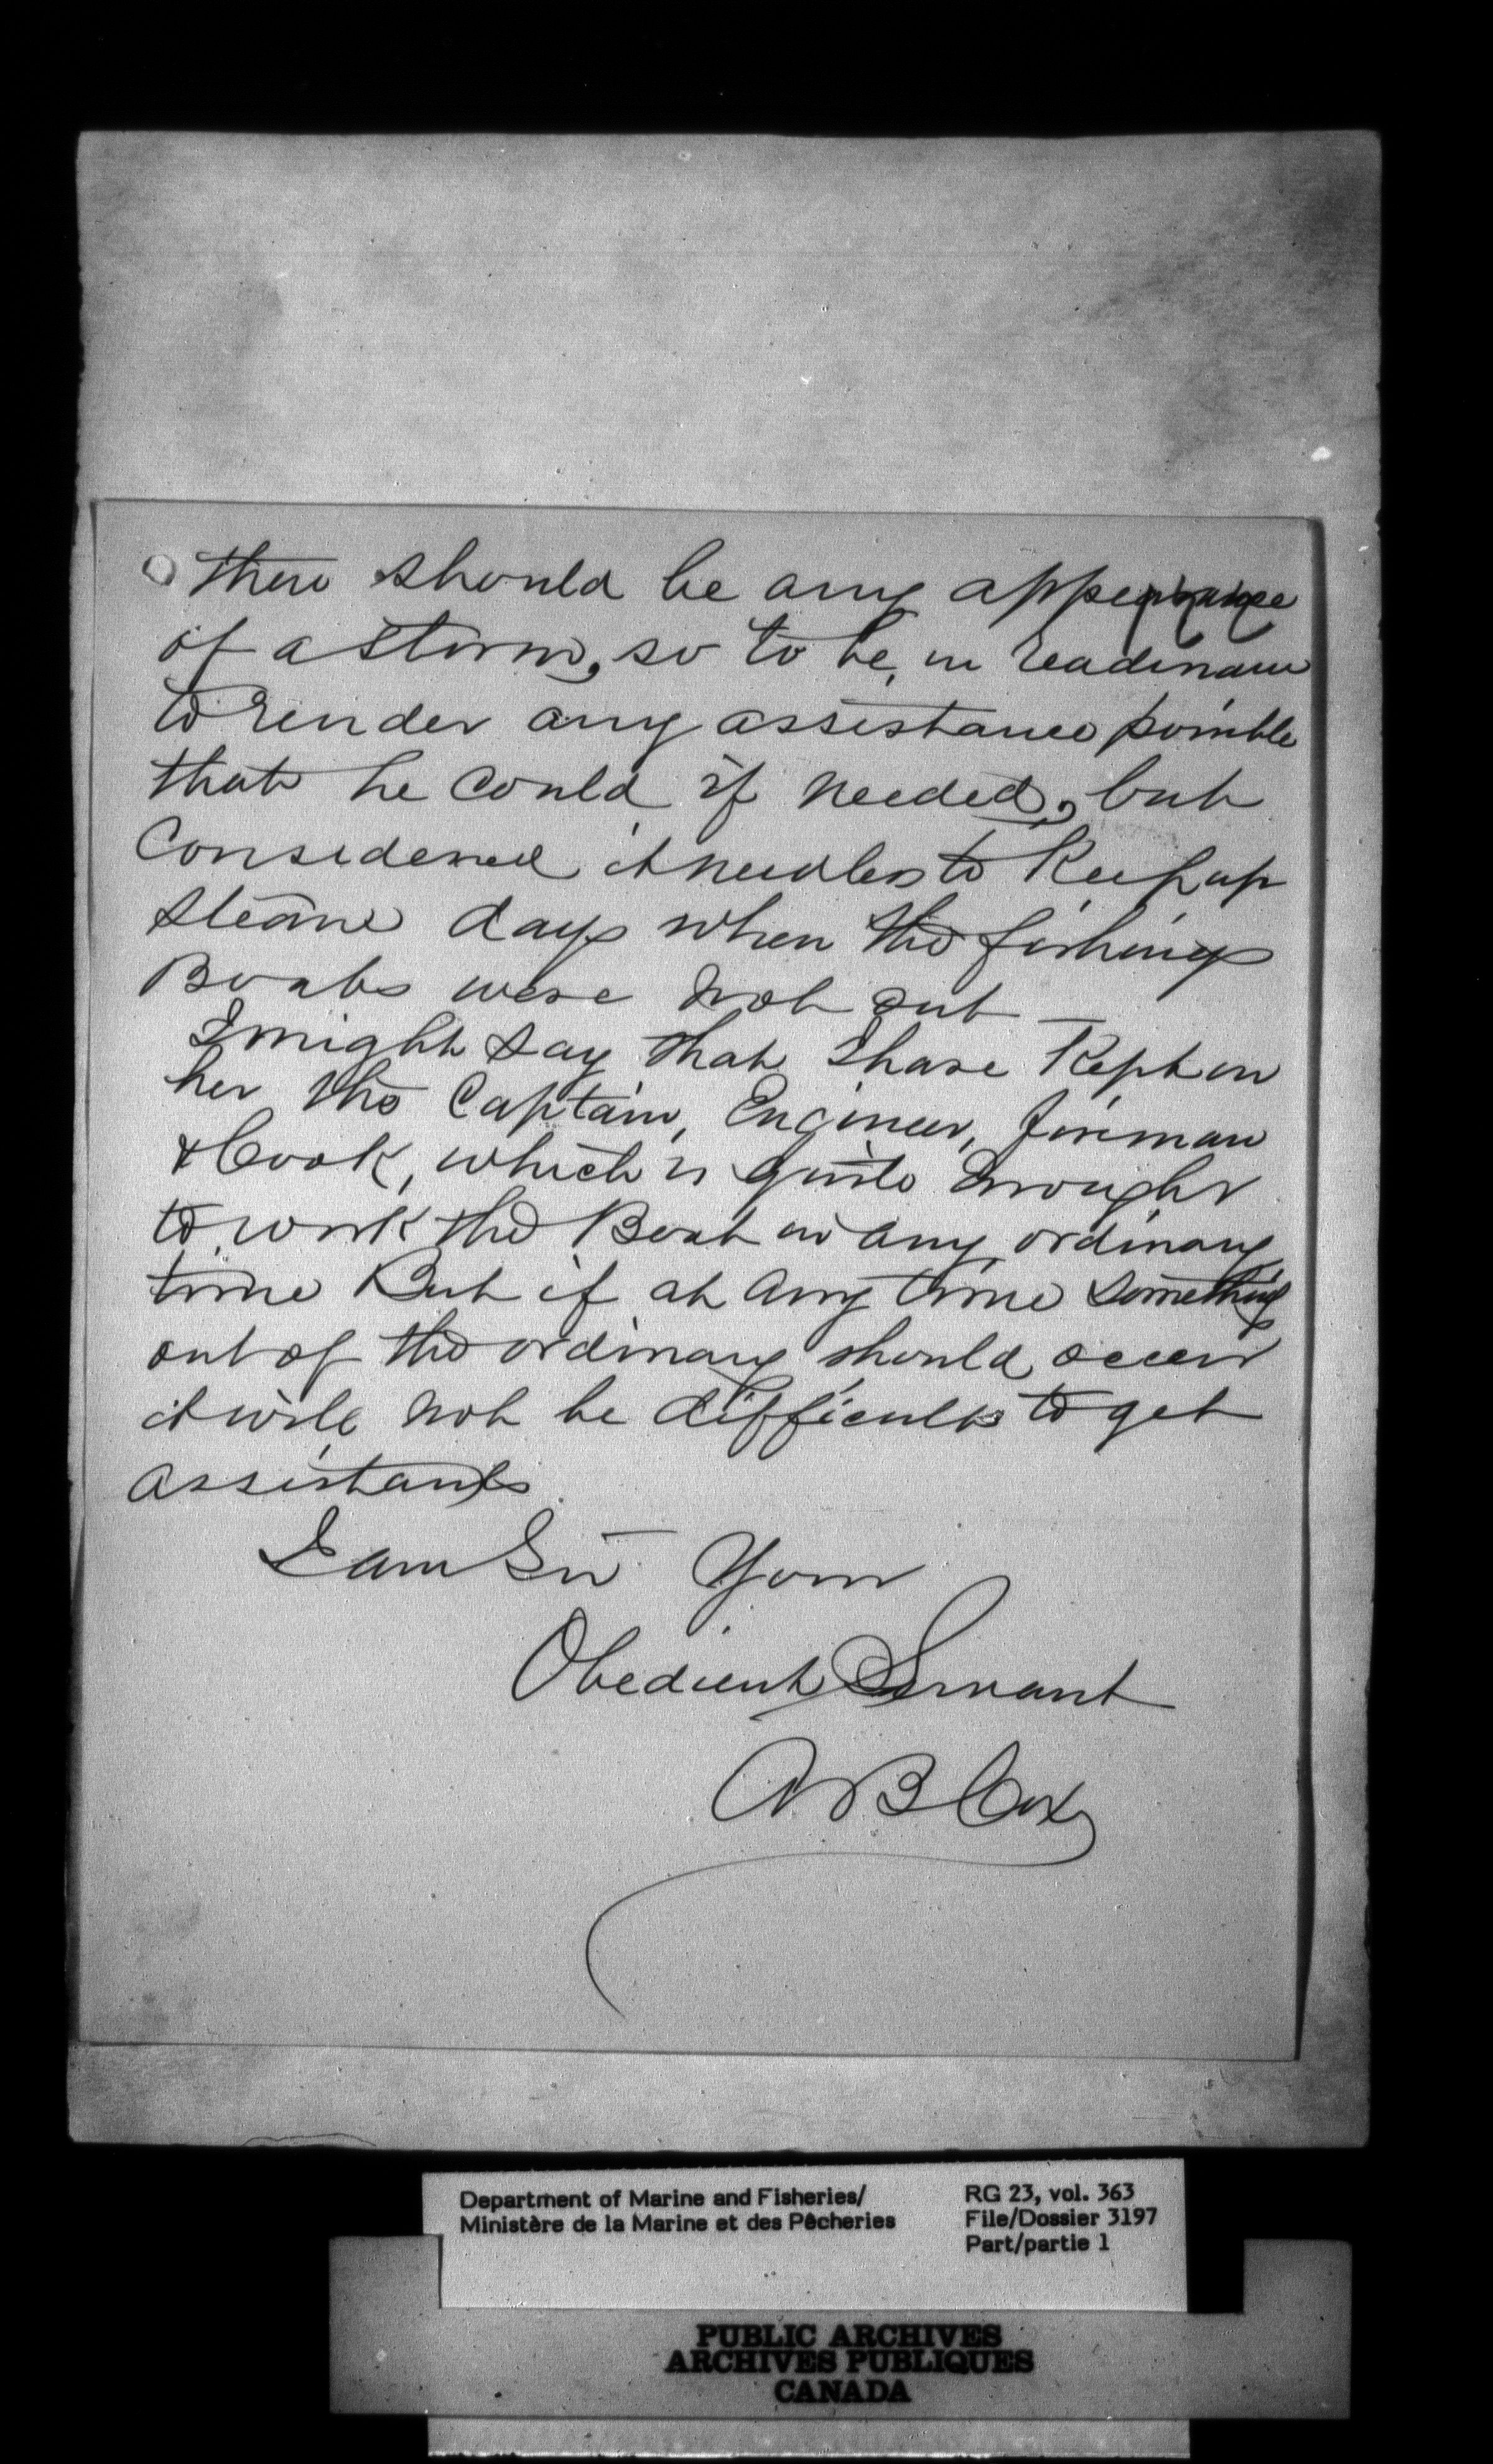 there should be any appearance
of a storm, so to be in readiness
to render any assistance possible
that he could if needed, but
Considered it needless to Keep up
steam days when the fishing
Boats were not out —
I might say that I have Kept on
her the Captain, Engineer, fireman
& Cook, which is quite Enough
to work the Boat in any ordinary
time But if at any time something
out of the ordinary should occur
it will not be difficult to get
assistants
I am Sir Your
Obedient Servant
A B Cox
Department of Marine and Fisheries/
Ministère de la Marine et des Pêcheries
RG 23, vol. 363
File/Dossier 3197
Part/partie 1
PUBLIC ARCHIVES
ARCHIVES PUBLIQUES
CANADA